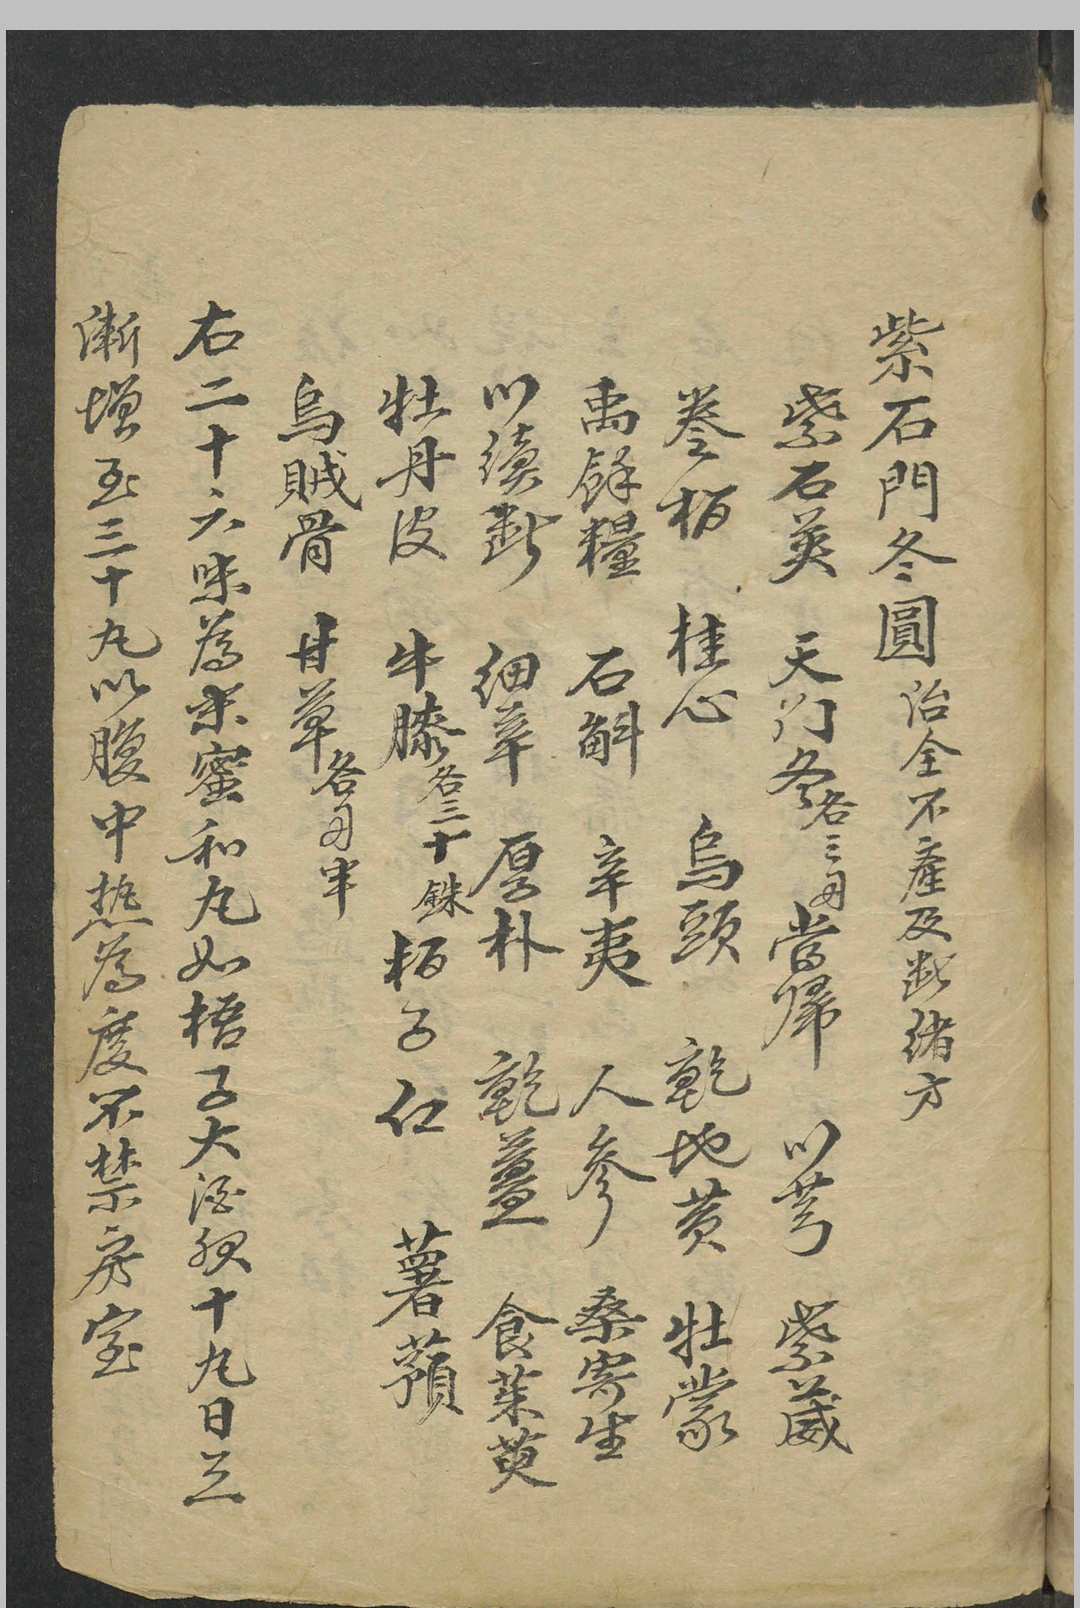 紫石門冬圓治全不產及斷緒方
紫石英 天门冬各三两 當歸 川芎 紫葳
卷栢 桂心 烏頭 乾地黃 牡蒙
禹餘糧 石斛 辛夷 人參 桑寄生
川續斷 細辛 厚朴 乾薑 食茱萸
牡丹皮 牛膝各三十銖 栢子仁 薯蕷
烏賊骨 甘草各两半
右二十六味為末蜜和丸如梧子大酒服十丸日三
漸增至三十丸以腹中熱為度不禁房室